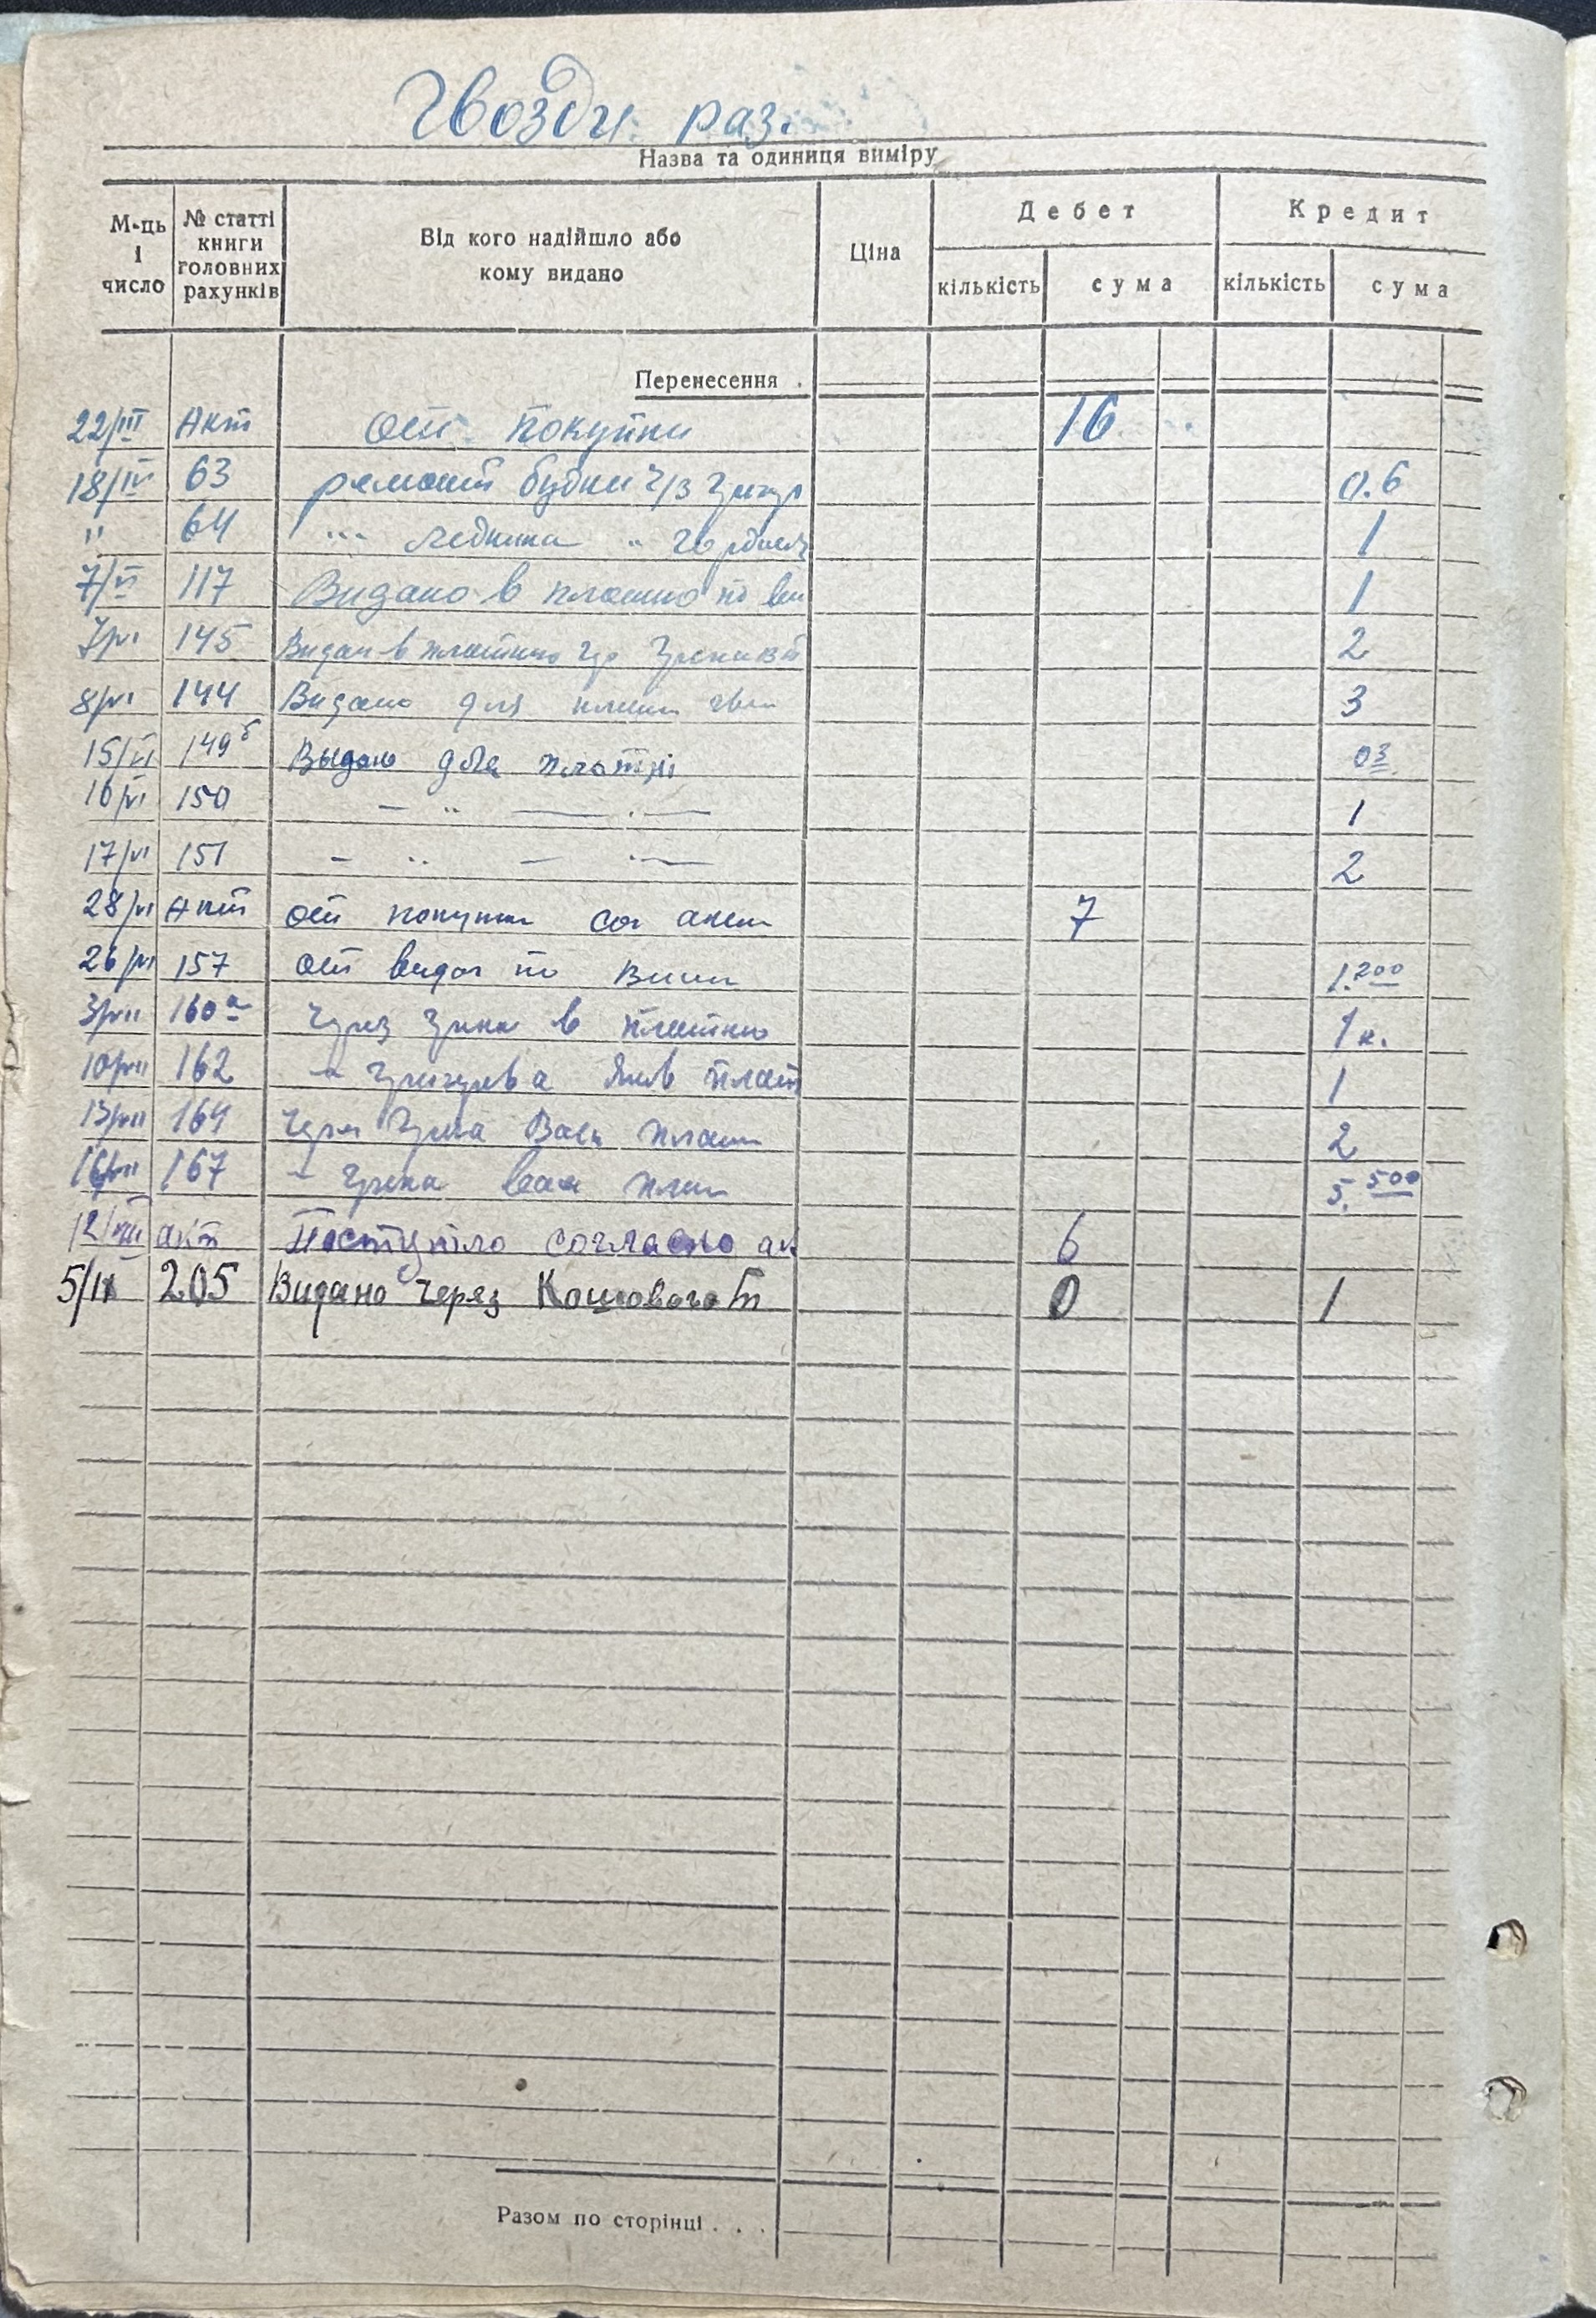 Гвозди раз.
Назва та одиниця виміру
М-ць і число № статті книги головних рахунків Від кого надійшло або кому видано Ціна Дебет Кредит
кількість сума кількість сума
Перенесення .
22/III Акт От покупки 16
18/IV 63 ремонт будки ч/з 0.6
" 64 " ледника " 1
7/VI 117 Видано в по 1
7/VI 145 Видан в 2
8/VI 144 Видано для 3
15/VI 149б Выдано для 03
16/VI 150 — " — 1
17/VI 151 — " — 2
28/VI Акт от покупки сог 7
26/VI 157 от видач по 1.200
3/VII 160а Через в 1 к.
10/VII 162 1
13/VII 164 2
16/VII 167 5.500
12/VIII акт Поступило согласно ак 6
5/IX 205 Видано через Кошового 0 1
Разом по сторінці . . .